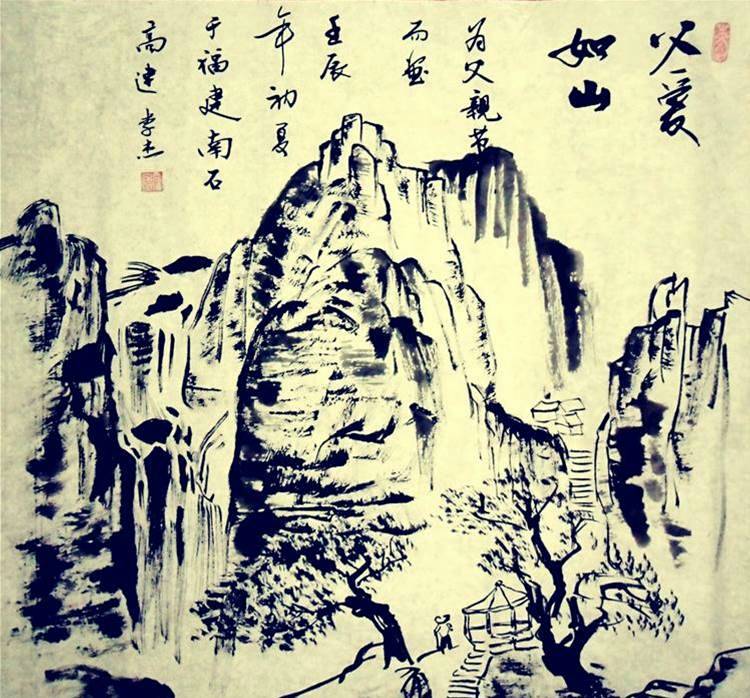 父爱
如山
为父親节
而画
壬辰
年初夏
于福建南石
高建 李杰